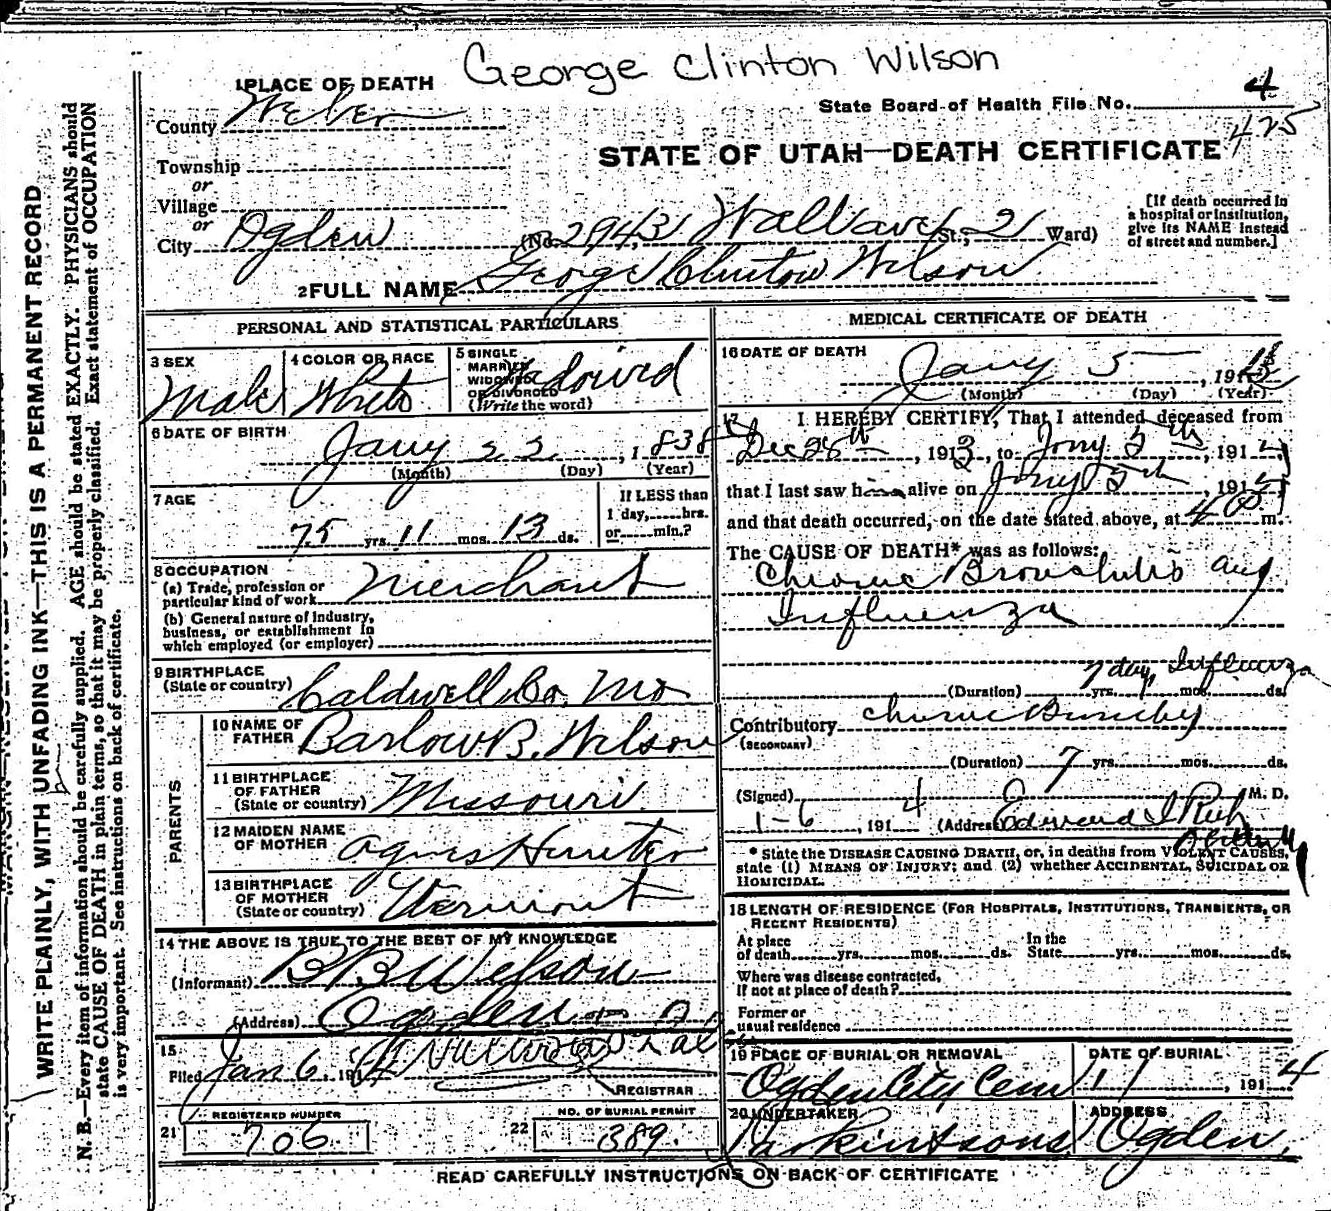 George Clinton Wilson
1 PLACE OF DEATH
State Board of Health File No. 4
425
County Weber
STATE OF UTAH—DEATH CERTIFICATE
Township
or
Village
or
City Ogden (No. 2943 Wall Ave St.; 2 Ward)
[If death occurred in
a hospital or institution,
give its NAME instead
of street and number.]
2 FULL NAME George Clinton Wilson
PERSONAL AND STATISTICAL PARTICULARS
3 SEX
Male
4 COLOR OR RACE
White
5 SINGLE
MARRIED
WIDOWED
OR DIVORCED
(Write the word)
Widowed
6 DATE OF BIRTH
Jany 22, 1838
(Month) (Day) (Year)
7 AGE
75 yrs. 11 mos. 13 ds.
If LESS than
1 day,.....hrs.
or.....min.?
8 OCCUPATION
(a) Trade, profession or
particular kind of work Merchant
(b) General nature of industry,
business, or establishment in
which employed (or employer)
9 BIRTHPLACE
(State or country) Caldwell Co. Mo
PARENTS
10 NAME OF
FATHER Barlow B. Wilson
11 BIRTHPLACE
OF FATHER
(State or country) Missouri
12 MAIDEN NAME
OF MOTHER Agnes Hunter
13 BIRTHPLACE
OF MOTHER
(State or country) Vermont
14 THE ABOVE IS TRUE TO THE BEST OF MY KNOWLEDGE
(Informant) B B Wilson
(Address) Ogden
15
Filed Jan 6, 191
REGISTRAR
REGISTERED NUMBER
21 706
NO. OF BURIAL PERMIT
22 389.
MEDICAL CERTIFICATE OF DEATH
16 DATE OF DEATH
Jany 5, 191
(Month) (Day) (Year)
17 I HEREBY CERTIFY, That I attended deceased from
Dec 28th, 1913, to Jany 5th, 1914
that I last saw him alive on Jany 5th, 191
and that death occurred, on the date stated above, at 4 m.
The CAUSE OF DEATH* was as follows:
Chronic Bronchitis and
Influenza
7 days Influenza
(Duration) yrs. mos. ds.
Contributory Chronic
(SECONDARY)
(Duration) 7 yrs. mos. ds.
(Signed) M. D.
1-6, 1914 (Address) Edward I Rich
Ogden
* State the DISEASE CAUSING DEATH, or, in deaths from VIOLENT CAUSES,
state (1) MEANS OF INJURY; and (2) whether ACCIDENTAL, SUICIDAL OR
HOMICIDAL.
18 LENGTH OF RESIDENCE (FOR HOSPITALS, INSTITUTIONS, TRANSIENTS, OR
RECENT RESIDENTS)
At place
of death.....yrs.....mos.....ds.
In the
State.....yrs.....mos.....ds.
Where was disease contracted,
If not at place of death?
Former or
usual residence
19 PLACE OF BURIAL OR REMOVAL
Ogden City Cem
DATE OF BURIAL
1/ , 1914
20 UNDERTAKER
Larkin & Sons
ADDRESS
Ogden
READ CAREFULLY INSTRUCTIONS ON BACK OF CERTIFICATE
WRITE PLAINLY, WITH UNFADING INK—THIS IS A PERMANENT RECORD
N. B.—Every item of information should be carefully supplied. AGE should be stated EXACTLY. PHYSICIANS should
state CAUSE OF DEATH in plain terms, so that it may be properly classified. Exact statement of OCCUPATION
is very important. See instructions on back of certificate.